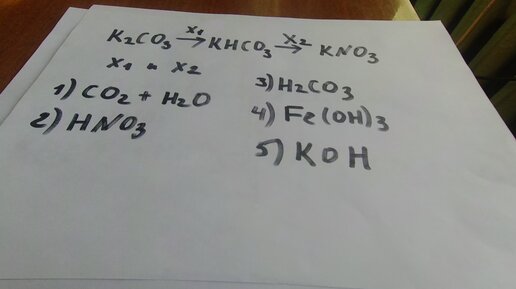 K₂CO₃ —X₁→ KHCO₃ —X₂→ KNO₃
X₁ и X₂
1) CO₂ + H₂O
2) HNO₃
3) H₂CO₃
4) Fe(OH)₃
5) KOH